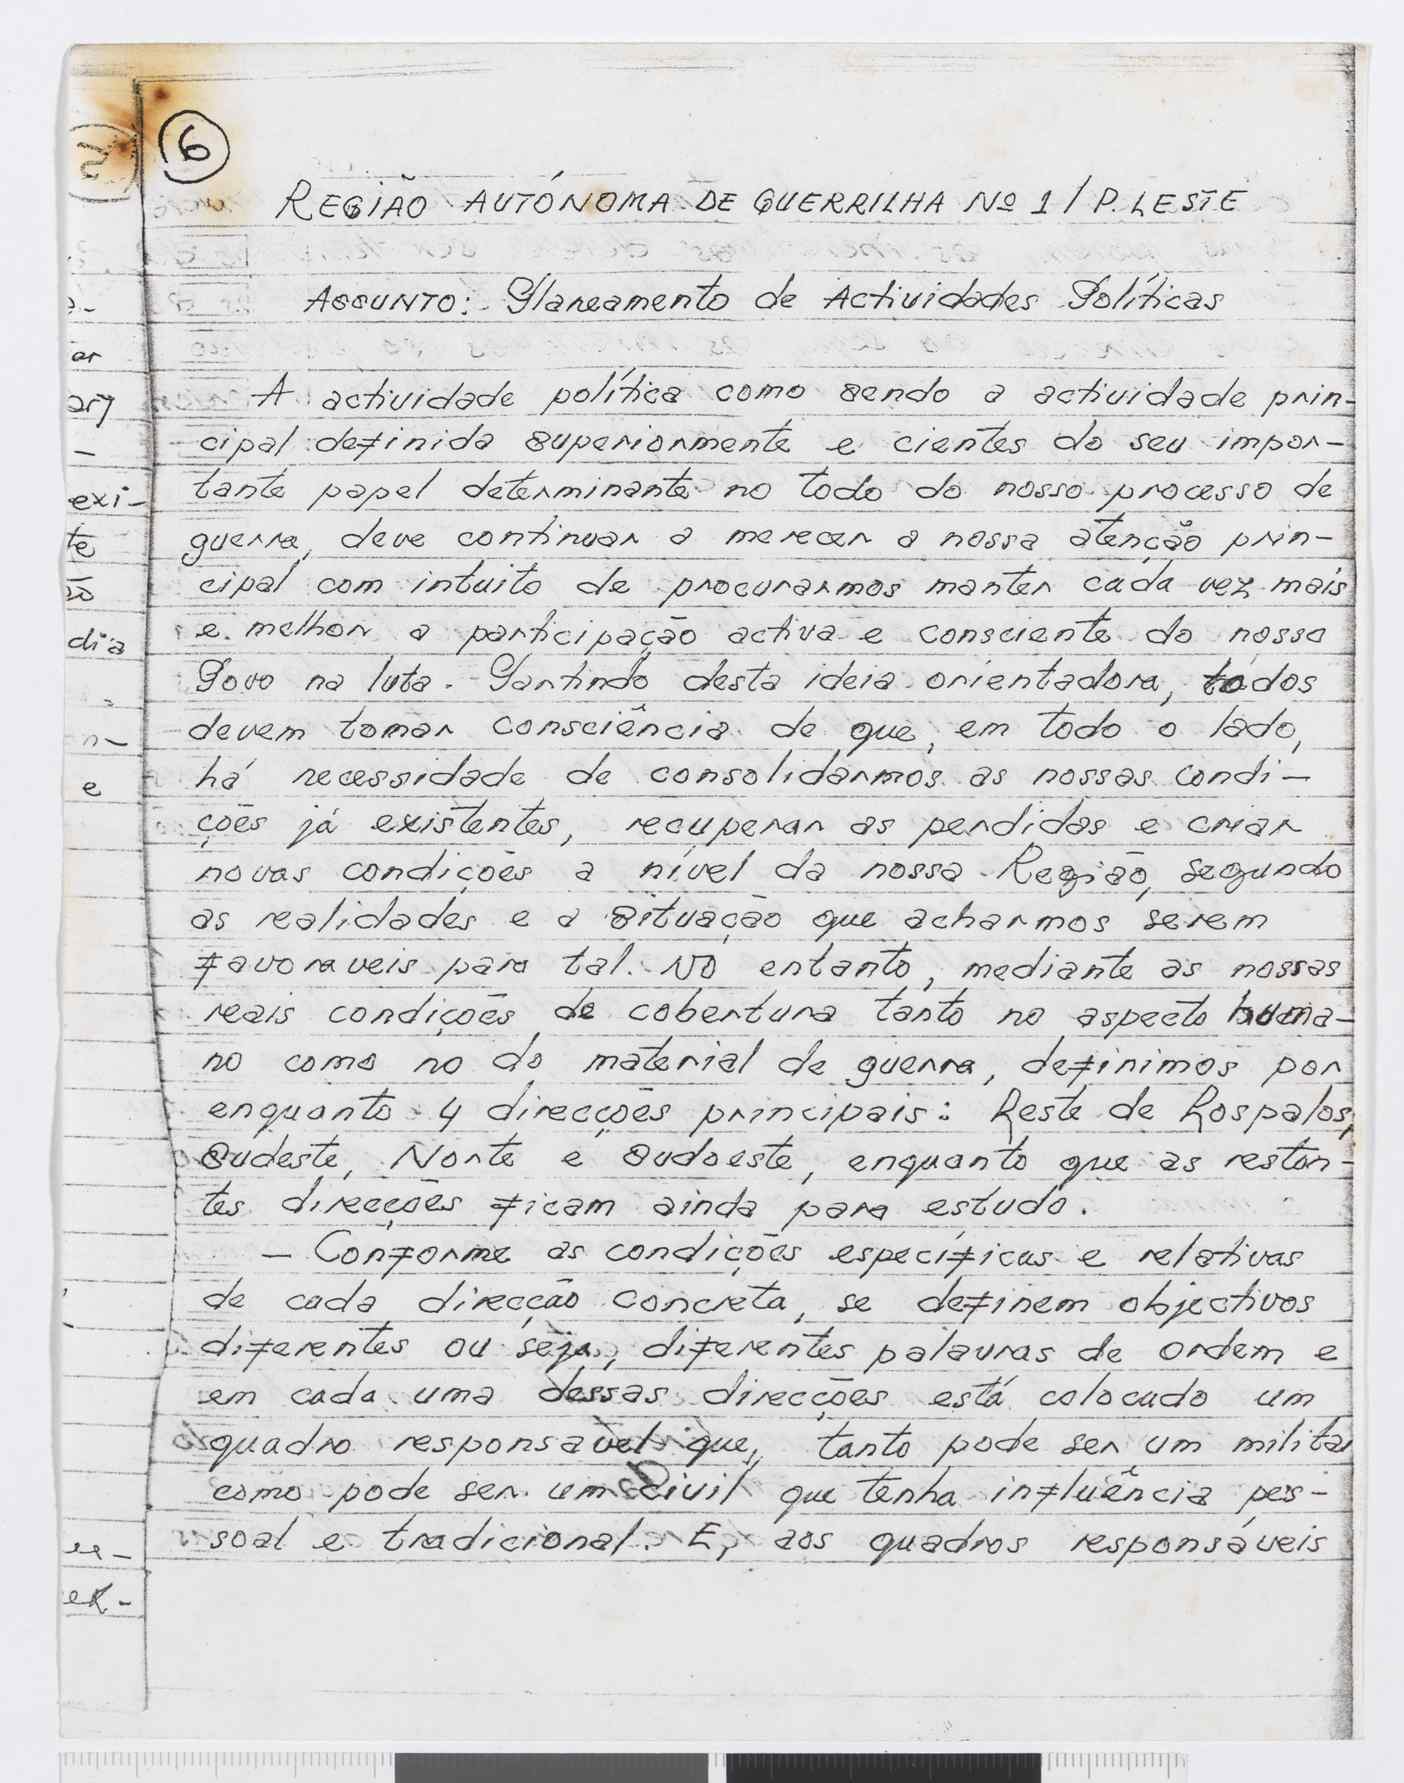 6
REGIÃO AUTÓNOMA DE GUERRILHA Nº 1 / P. LESTE
ASSUNTO: Planeamento de Actividades Políticas
A actividade política como sendo a actividade prin-
cipal definida superiormente e cientes do seu impor-
tante papel determinante no todo do nosso processo de
guerra, deve continuar a merecer a nossa atenção prin-
cipal com intuito de procurarmos manter cada vez mais
e melhor a participação activa e consciente do nosso
Povo na luta. Partindo desta ideia orientadora, todos
devem tomar consciência de que, em todo o lado,
há necessidade de consolidarmos as nossas condi-
ções já existentes, recuperar as perdidas e criar
novas condições a nível da nossa Região, segundo
as realidades e a situação que acharmos serem
favoraveis para tal. No entanto, mediante as nossas
reais condições de cobertura tanto no aspecto huma-
no como no do material de guerra, definimos por
enquanto 4 direcções principais: Leste de Lospalos,
Sudeste, Norte e Sudoeste, enquanto que as restan-
tes direcções ficam ainda para estudo.
- Conforme as condições específicas e relativas
de cada direcção concreta, se definem objectivos
diferentes ou seja, diferentes palavras de ordem e
em cada uma dessas direcções está colocado um
quadro responsavel que, tanto pode ser um milita
como pode ser um Civil que tenha influência pes-
soal e tradicional. E, aos quadros responsáveis
ar
exi-
te
dia
n-
e